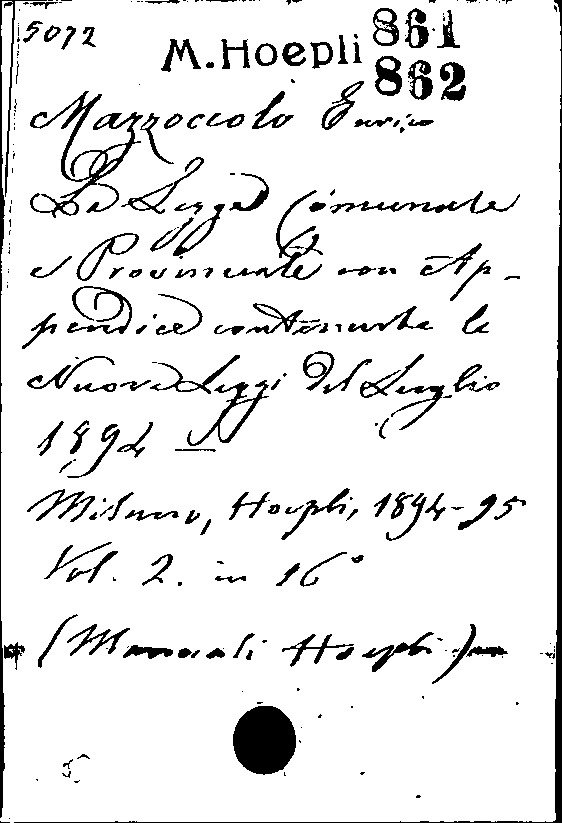 5072
M. Hoepli 861
862
Mazzoccolo Enrico
La Legge Comunale
e Provinciale con Ap-
pendice contenente le
Nuove Leggi del Luglio
1894 —
Milano, Hoepli, 1894-95
Vol. 2. in 16°
(Manuali Hoepli)